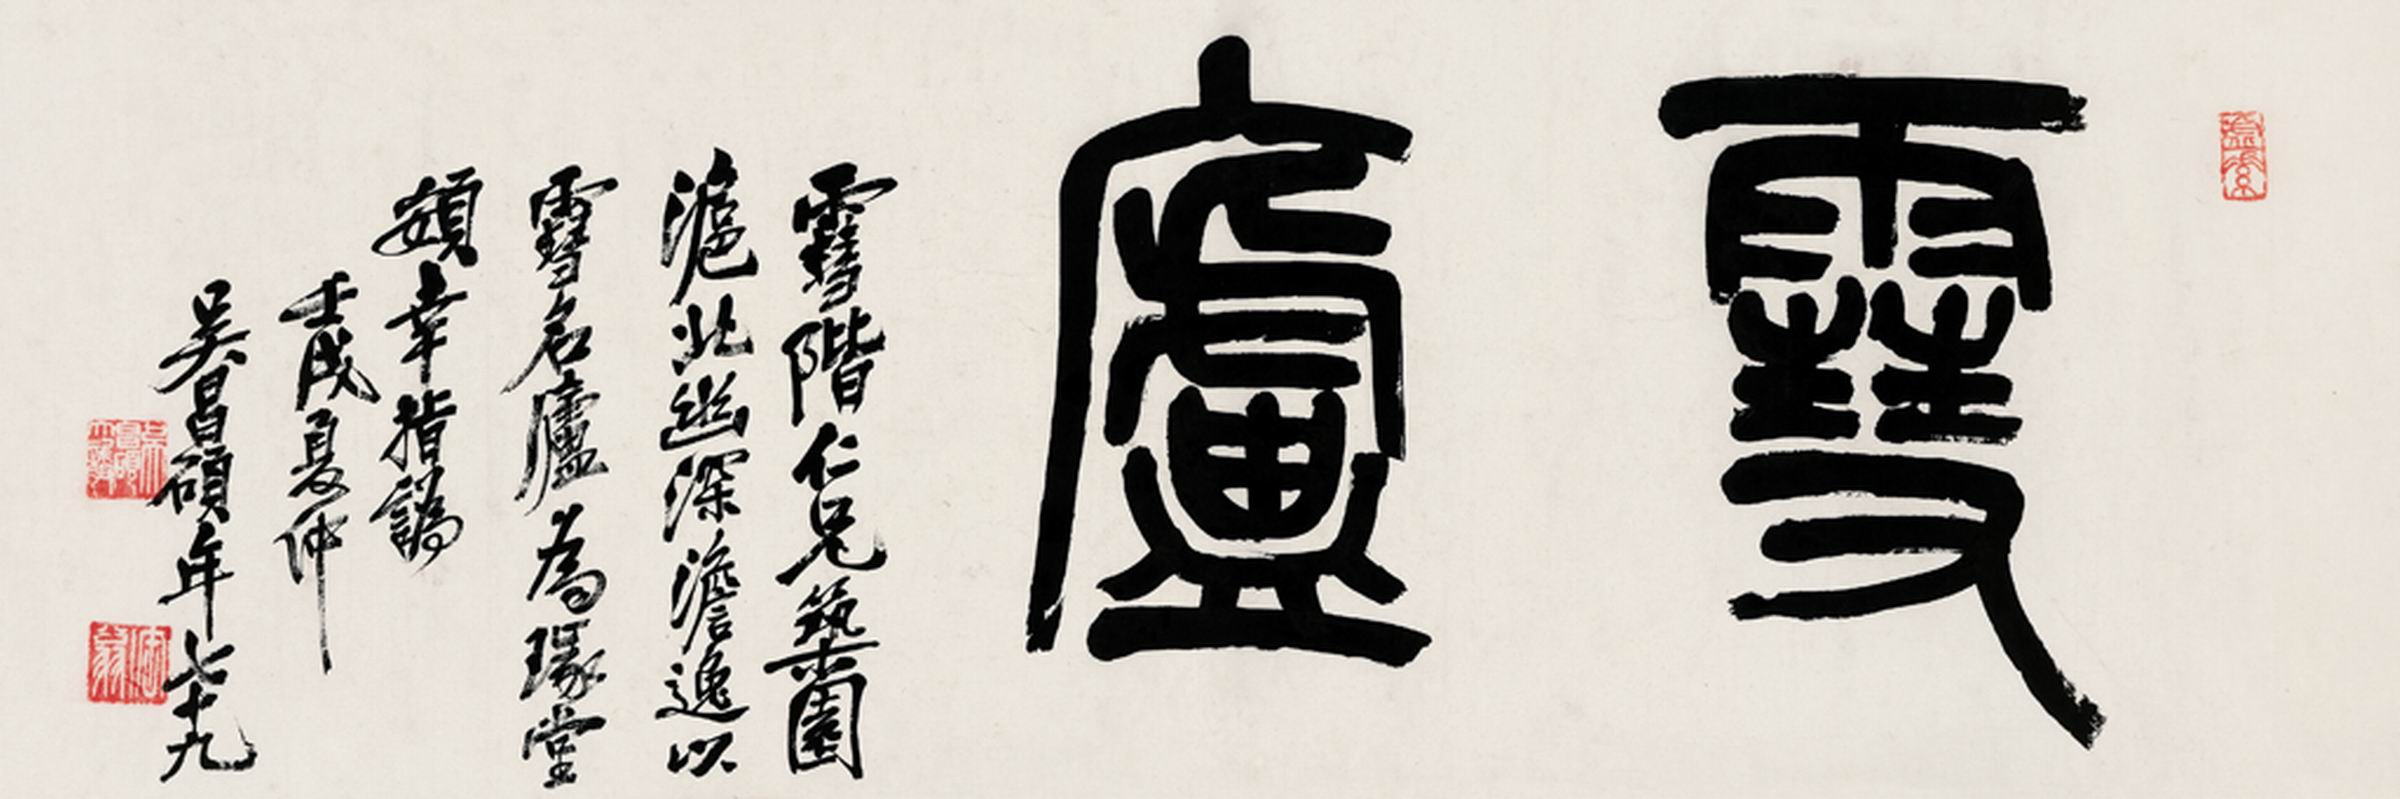 雪廬
雪階仁兄築園
滬北幽深澹逸以
雪名廬為瑑堂
額幸指謬
壬戌夏仲
吳昌碩年七十九